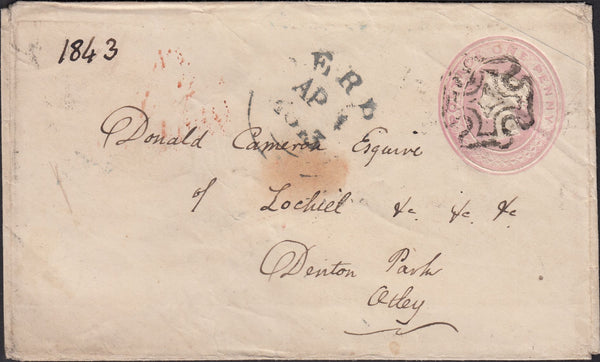 1843
ONE PENNY
AP 1
1843
Donald Cameron Esquire
of Lochiel &c &c &c
Denton Park
Otley